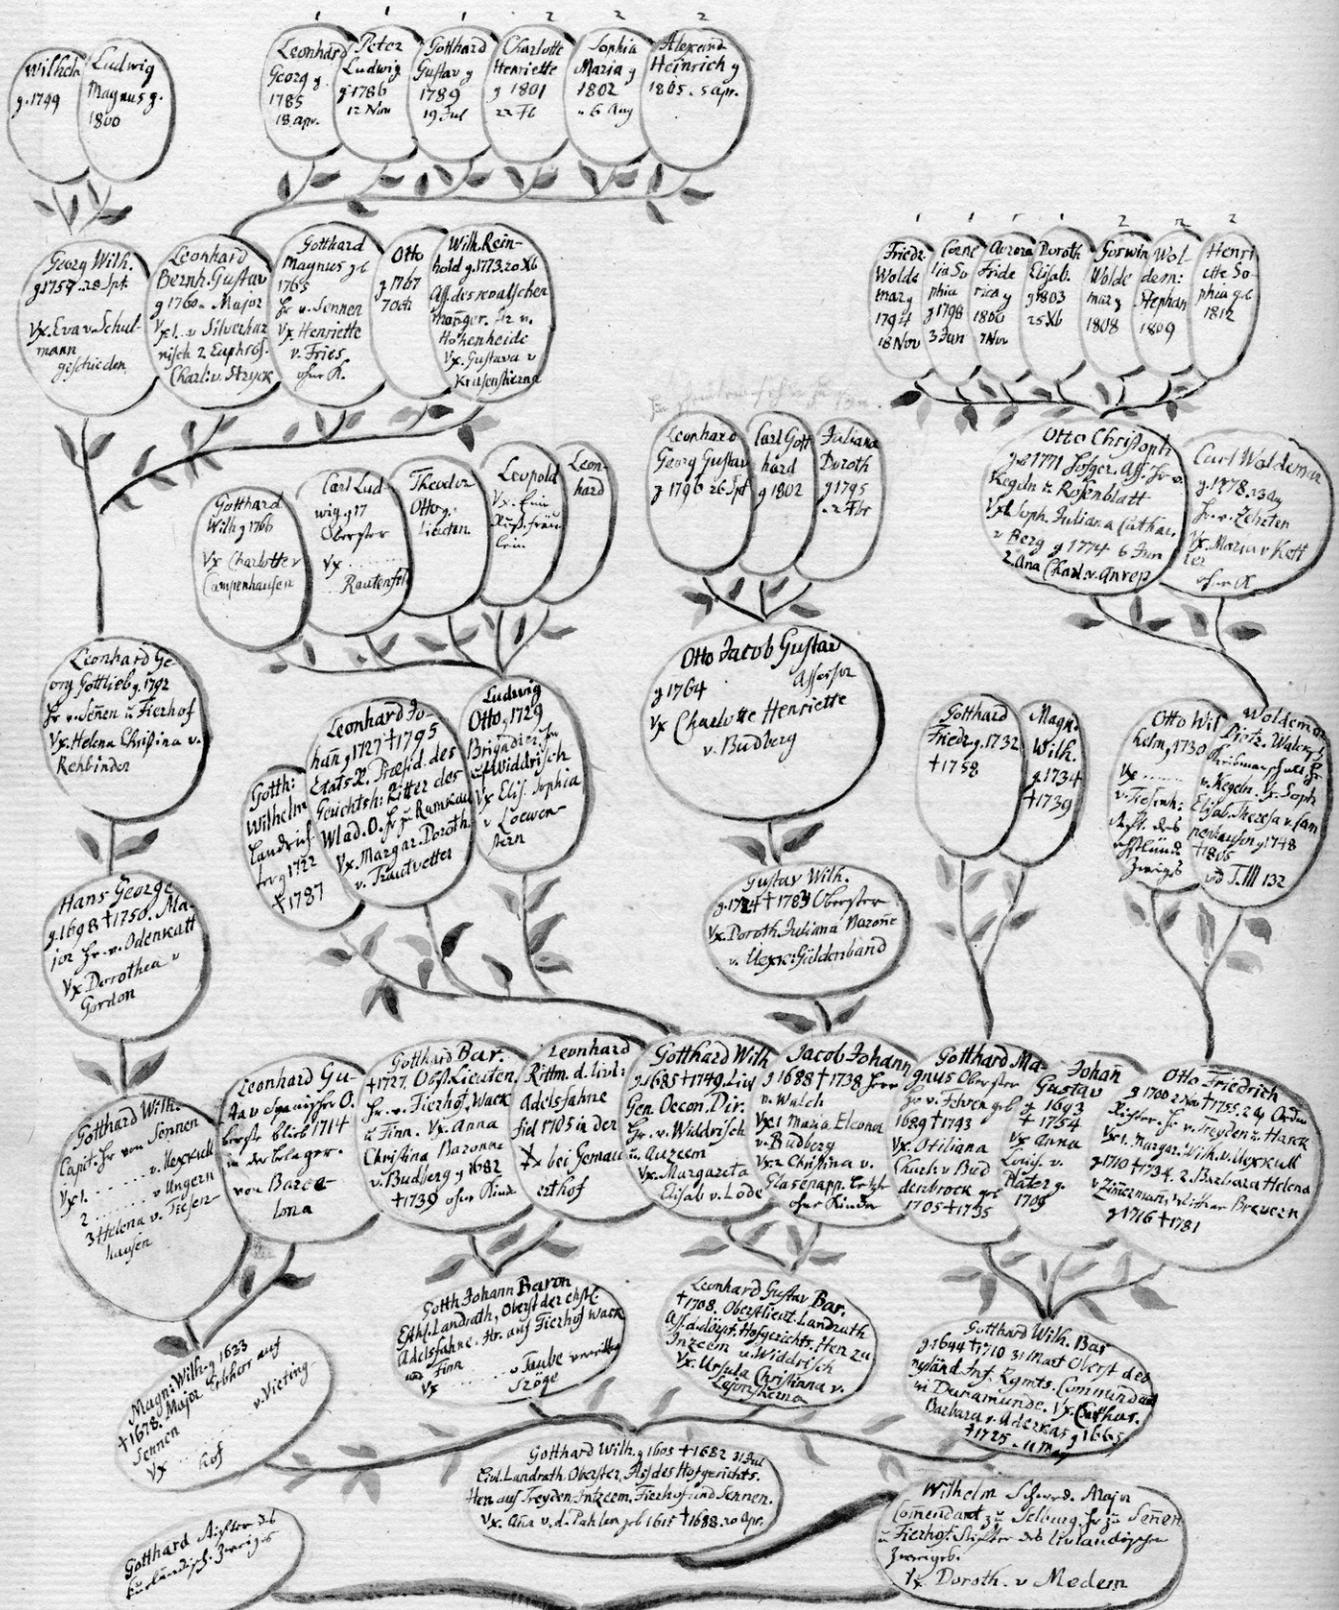 1 1 1 2 2 2
Wilhelm
g. 1799
Ludwig
Magnus g.
1800
Leonhard
Georg g.
1785
18. apr.
Peter
Ludwig
g 1786
12 Nov
Gotthard
Gustav g
1789
19 Jul
Charlotte
Henriette
g 1801
22 Fb
Sophia
Maria g
1802
6 Aug
Alexand
Heinrich g
1805. 5 apr.
Georg Wilh.
g 1757. 28 Spt.
Vx. Eva v. Schul-
mann
geschieden
Leonhard
Bernh. Gustav
g 1760. Major
Vx 1. v Silverhar
nisch 2 Euphros.
Charl. v. Stryck
Gotthard
Magnus geb
1765
Hr v. Sennen
Vx Henriette
v. Fries
ohne K.
Otto
g 1767
7 Octb
Wilh. Rein-
hold g. 1773. 20 Xb
Aß. des revalschen
Hohenheide
Vx. Gustava v
Krusenstierna
1 1 1 1 2 2 2
Friedr.
Wolde
mar g
1794
18 Nov
Corne
lia So
phia
g 1798
3 Jun
Aurora
Fride
rica g
1800
7 Nov
Doroth
Elisab.
g 1803
25 Xb
Goswin
Wolde
mar g
1808
Wol
dem:
Stephan
1809
Henri
ette So
phia geb
1812
Gotthard
Wilh g 1766
Vx Charlotte v
Campenhausen
Carl Lud-
wig. g 17
Oberster
Vx ........
Rautenfeld
Theodor
Otto g.
Lieuten.
Leopold
Vx. Ein
Russ. Fräu
lein
Leon-
hard
Leonhard
Georg Gustav
g 1796 26 Spt
Carl Gott
hard
g 1802
Juliana
Doroth
g 1795
2 Fbr
Otto Christoph
g. 1771 Hofger. Aß. Hr v.
Kegeln u. Rosenblatt
Vx 1. Soph. Juliana Cathar.
v Berg g 1774 6 Jun
2. Ana Charl. v. Anrep
Carl Woldemar
g. 1778. 23 Aug
Hr. v. Zehrten
Vx. Maria v Kott
ler
ohne K
Leonhard Ge
org Gottlieb g. 1742
Hr v. Senen u Fierhof
Vx. Helena Christina v.
Rehbinder
Gotth:
Wilhelm
Landrich
ter g 1722
† 1787
Leonhard Jo-
hañ g 1727 † 1795
Etats R. Præsid. des
Gerichtsh: Ritter des
Wlad. O. Hr zu Ramkau
Vx. Margar. Doroth.
v. Trautvetter
Ludwig
Otto g. 1729
Brigadier. Hr
auf Widdrisch
Vx Elis. Sophia
v Loewen-
stern
Otto Jacob Gustav
g 1764 Assessor
Vx Charlotte Henriette
v. Budberg
Gotthard
Friedr. g. 1732
† 1758
Magn.
Wilh.
g 1734
† 1739
Otto Wil
helm g. 1730
Vx ........
v. Tiesenh:
Stift. des
ehstländ
Zweigs
Woldemar
v. Kegeln. Vx. Soph
Elisab. Theresa v. Cam
penhausen g 1748
† 1805
vid T. III 132
Hans George
g. 1698 † 1750. Ma-
jor Hr. v. Odenkatt
Vx Dorothea v
Gordon
Gustav Wilh.
g. 1724 † 1789 Oberster
Vx. Doroth. Juliana Baronne
v. Uexk: Güldenband
Gotthard Wilh.
Capit. Hr von Sennen
Vx 1. ........ v. Uexkull
2 ........ v Ungern
3 Helena v. Tiesen-
hausen
Leonhard Gu-
stav Spanischer O.
berster blieb 1714
in der belager.
von Barce-
lona
Gotthard Bar.
† 1727. Obst. Lieuten.
Hr. v. Fierhof, Wack
u Finn. Vx. Anna
Christina Baronne
v. Budberg g 1682
† 1739 ohne Kind.
Leonhard
Rittm. d. livl:
Adelsfahne
fiel 1705 in der
bei Gemau
erthof
Gotthard Wilh
g. 1685 † 1749. Liv
Gen. Oecon. Dir.
Hr. v. Widdrisch
u. Auzeem
Vx. Margareta
Elisab v. Lode
Jacob Johann
g 1688 † 1738 Herr
v. Walch
Vx 1 Maria Eleona
v. Budberg
Vx 2 Christina v.
Glasenapp. letzte
ohne Kinder
Gotthard Ma-
gnus Oberster
Hr v. Fehren geb
1689 † 1743
Vx. Otiliana
Charl. v Bud
denbrock geb
1705 † 1735
Johan
Gustav
g 1693
† 1754
Vx Anna
Louis. v.
Plater g.
1709
Otto Friedrich
Richter. Hr v. Treyden u. Harck
Vx 1. Margar. Wilh. v. Uexkull
g 1710 † 1734. 2. Barbara Helena
v Zimerman, Wittwe Brevern
g 1716 † 1781
Magn: Wilh. g 1623
† 1678. Major Erbherr auf
Sennen
Vx .... v. Vieting-
hof
Gotth Johann Baron
Ehstl. Landrath, Oberst der ehstl.
Adelsfahne. Hr. auf Fierhof Wack
und Finn
Vx ........ v Taube verwittw
Szöge
Leonhard Gustav Bar.
† 1708. Oberstlieut. Landrath
Aß. d. dörpt. Hofgerichts. Herr zu
Inzeem u. Widdrisch
Vx. Ursula Christina v.
Gotthard Wilh. Bar
g 1644 † 1710 31 Mart Oberst des
ryländ. Inf. Rgmts. Commendant
in Dunamunde. Vx. Cathar.
Barbara v. Aderkas g 1665
† 1725. 11 May
Gotthard Wilh. g 1605 † 1682 31 Jul
Livl. Landrath. Oberster, Aß. des Hofgerichts.
Herr auf Treyden, Intzeem, Fierhof und Sennen.
Vx. Ana v. d. Pahlen geb 1615 † 1688. 20 Apr.
Gotthard Stifter des
kurländisch. Zweiges
Wilhelm Schwed. Major
Comendant zu Selburg. Hr zu Senen
u Fierhof. Stifter des livländischen
Zweiges.
Vx. Doroth. v Medem